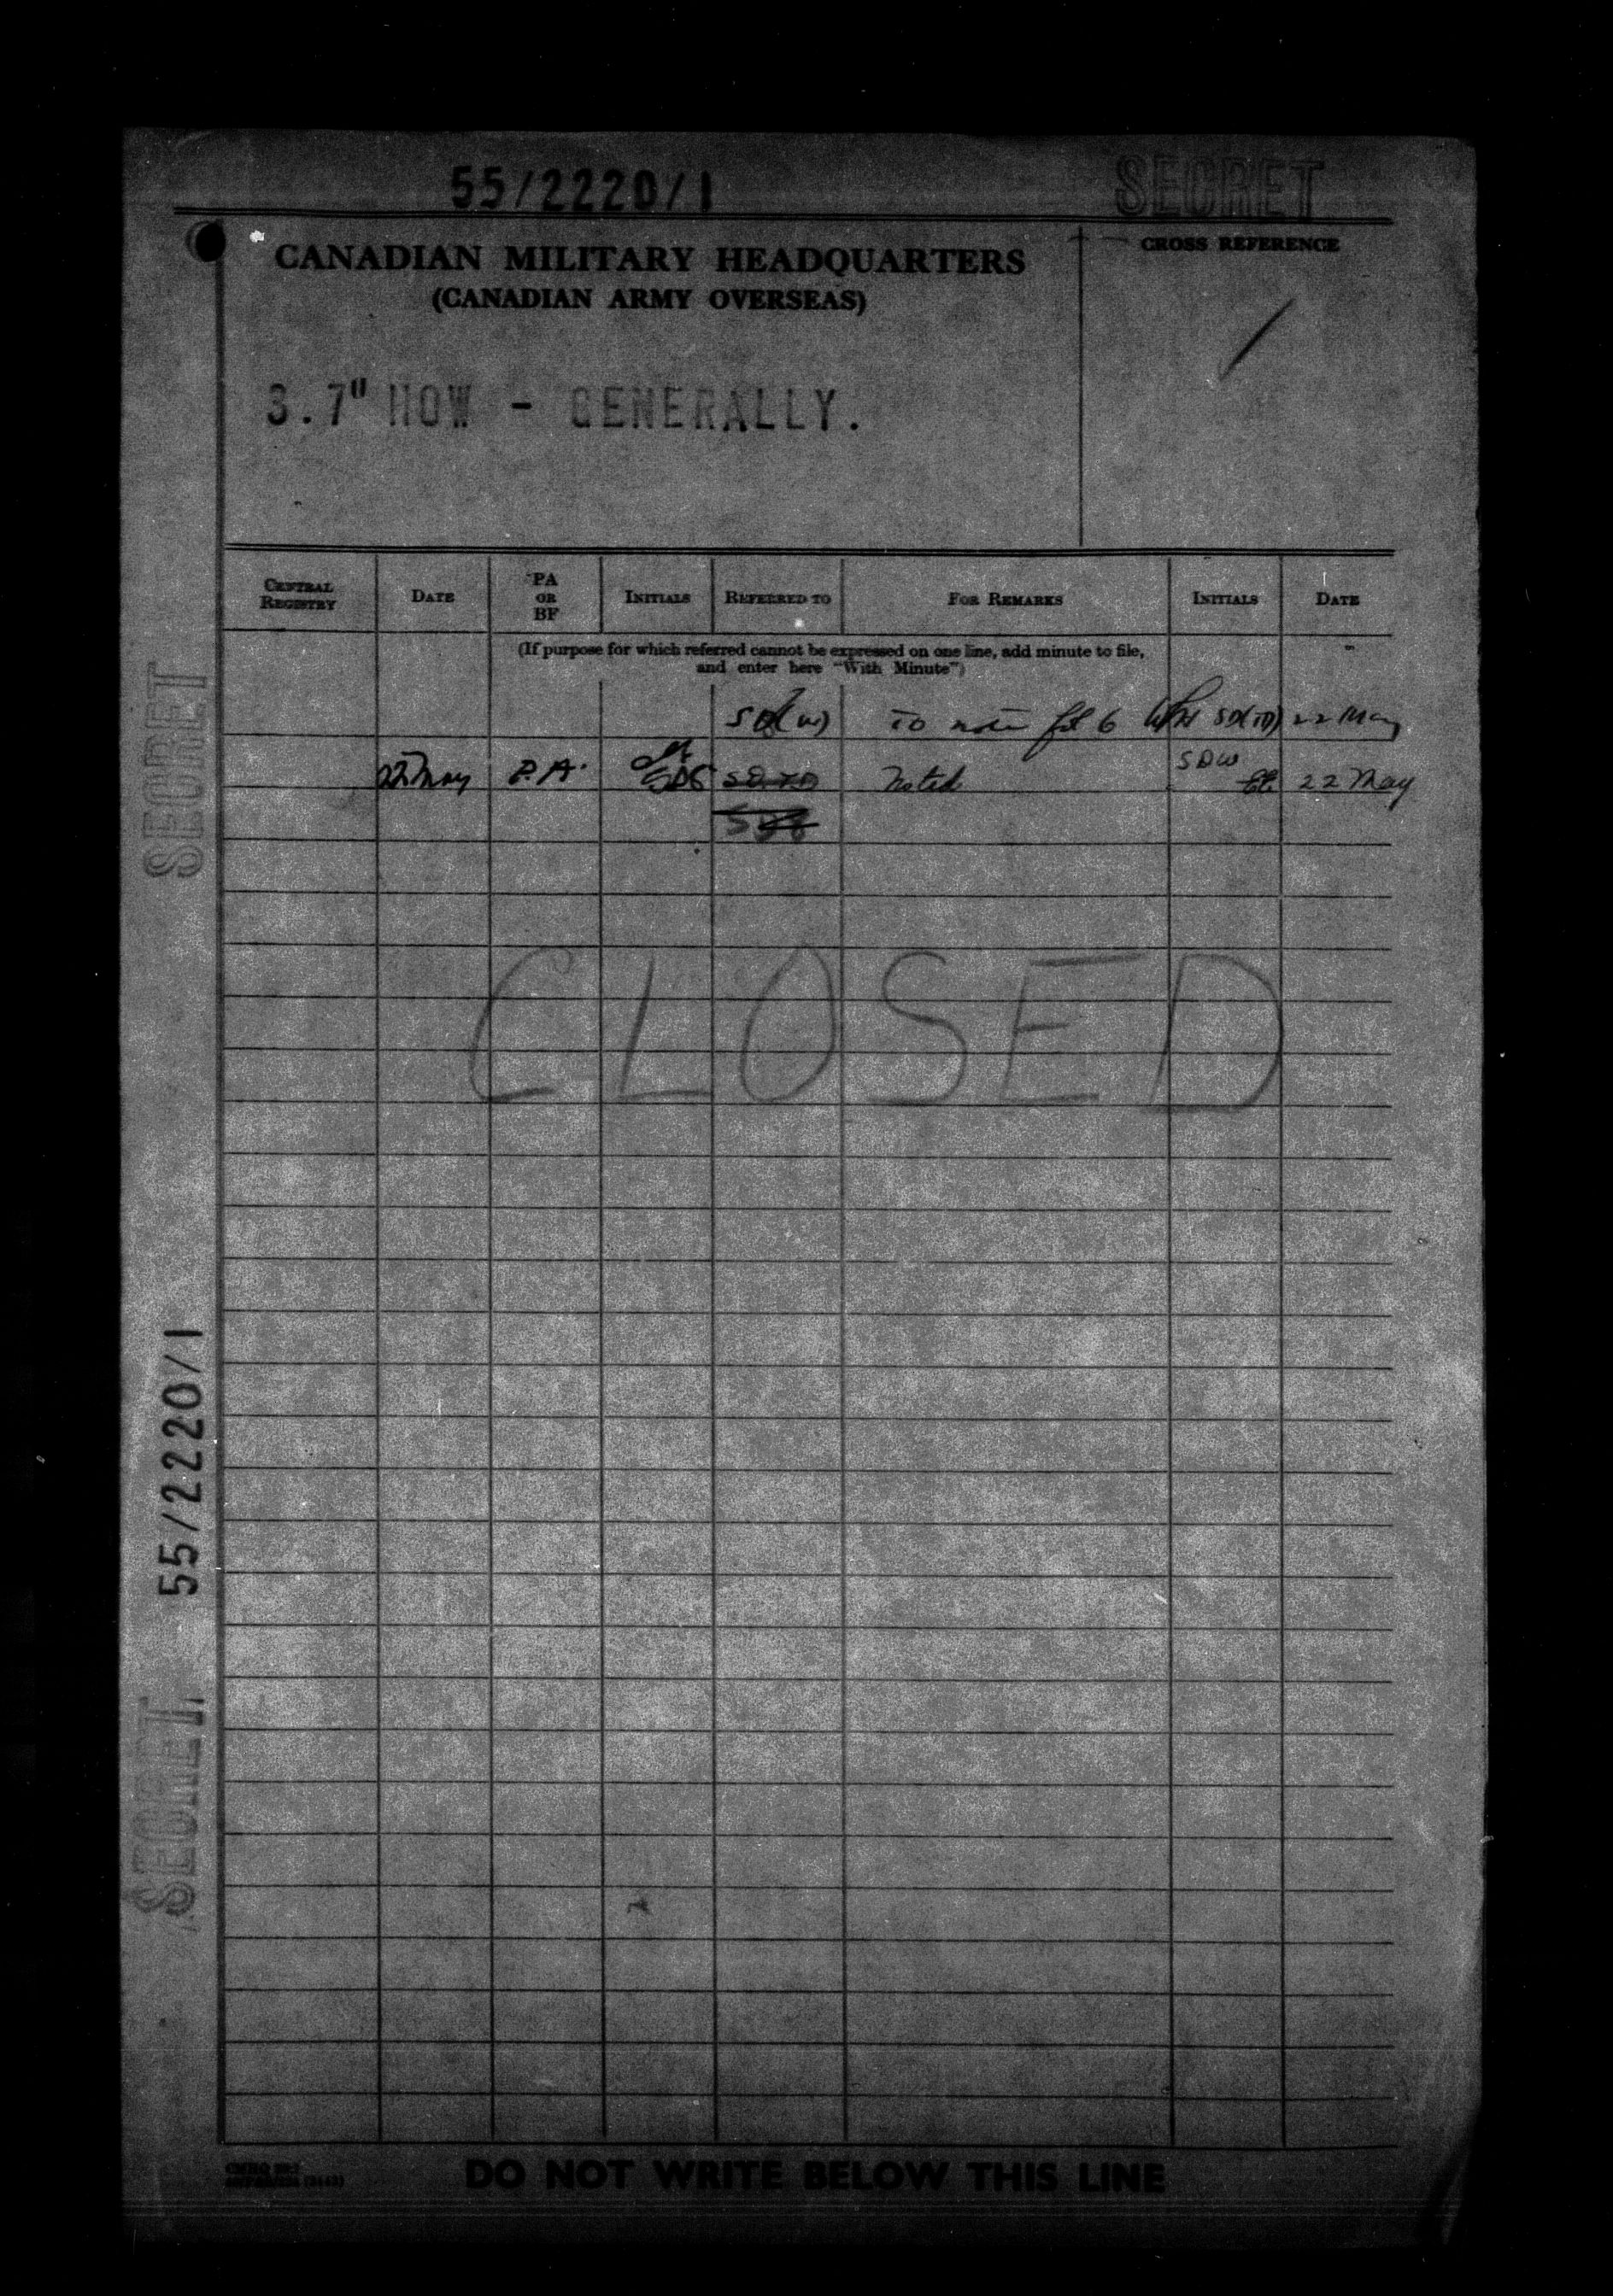 55/2220/1
SECRET
CANADIAN MILITARY HEADQUARTERS
(CANADIAN ARMY OVERSEAS)
CROSS REFERENCE
3.7" HOW - GENERALLY.
CENTRAL REGISTRY
DATE
PA OR BF
INITIALS
REFERRED TO
FOR REMARKS
INITIALS
DATE
(If purpose for which referred cannot be expressed on one line, add minute to file,
and enter here "With Minute")
SD(W) To note fol 6 SD(TD) 22 May
22 May P.A. Noted SDW 22 May
CLOSED
SECRET
55/2220/1
SECRET
DO NOT WRITE BELOW THIS LINE